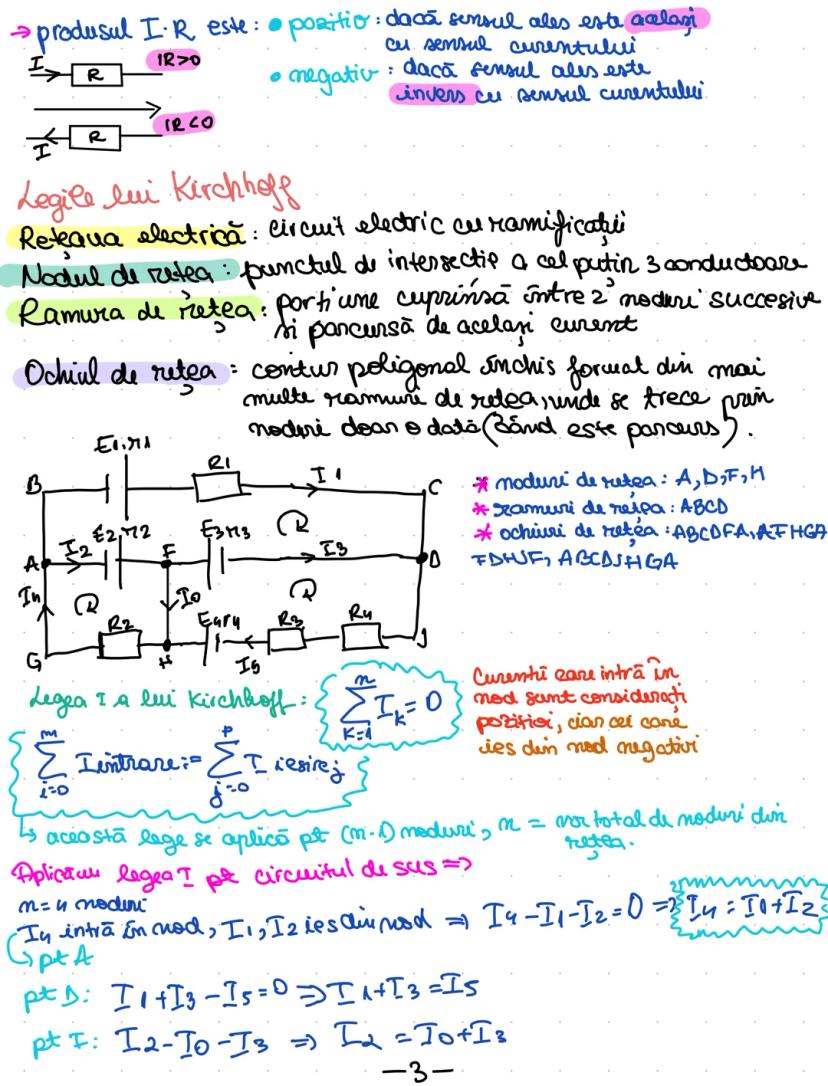 → produsul I·R este: • pozitiv: dacă sensul ales este același
cu sensul curentului
• negativ: dacă sensul ales este
invers cu sensul curentului
I R IR>0
I R IR<0
Legile lui Kirchhoff
Rețeaua electrică: circuit electric cu ramificații
Nodul de rețea: punctul de intersecție a cel puțin 3 conductoare
Ramura de rețea: porțiune cuprinsă între 2 noduri succesive
și parcursă de același curent
Ochiul de rețea: contur poligonal închis format din mai
multe ramuri de rețea, unde se trece prin
noduri doar o dată (când este parcurs).
E1,r1
B R1 I1 C
* noduri de rețea: A, D, F, H
* ramuri de rețea: ABCD
* ochiuri de rețea: ABCDFA, AFHGA
FDHJF, ABCDJHGA
A I2 E2,r2 F E3r3 I3 D
I4 I0
G R2 H E4r4 I5 R3 R4 J
Legea I a lui Kirchhoff:
n
∑ Ik = 0
k=1
Curenții care intră în
nod sunt considerați
pozitivi, iar cei care
ies din nod negativi
m p
∑ Iintrare i = ∑ I ieșire j
i=0 j=0
↳ această lege se aplică pt (n-1) noduri, n = nr total de noduri din
rețea.
Aplicăm legea I pt circuitul de sus =>
n=4 noduri
I4 intră în nod, I1, I2 ies din nod => I4 - I1 - I2 = 0 => I4 = I1 + I2
↳ pt A
pt D: I1 + I3 - I5 = 0 => I1 + I3 = I5
pt F: I2 - I0 - I3 => I2 = I0 + I3
-3-